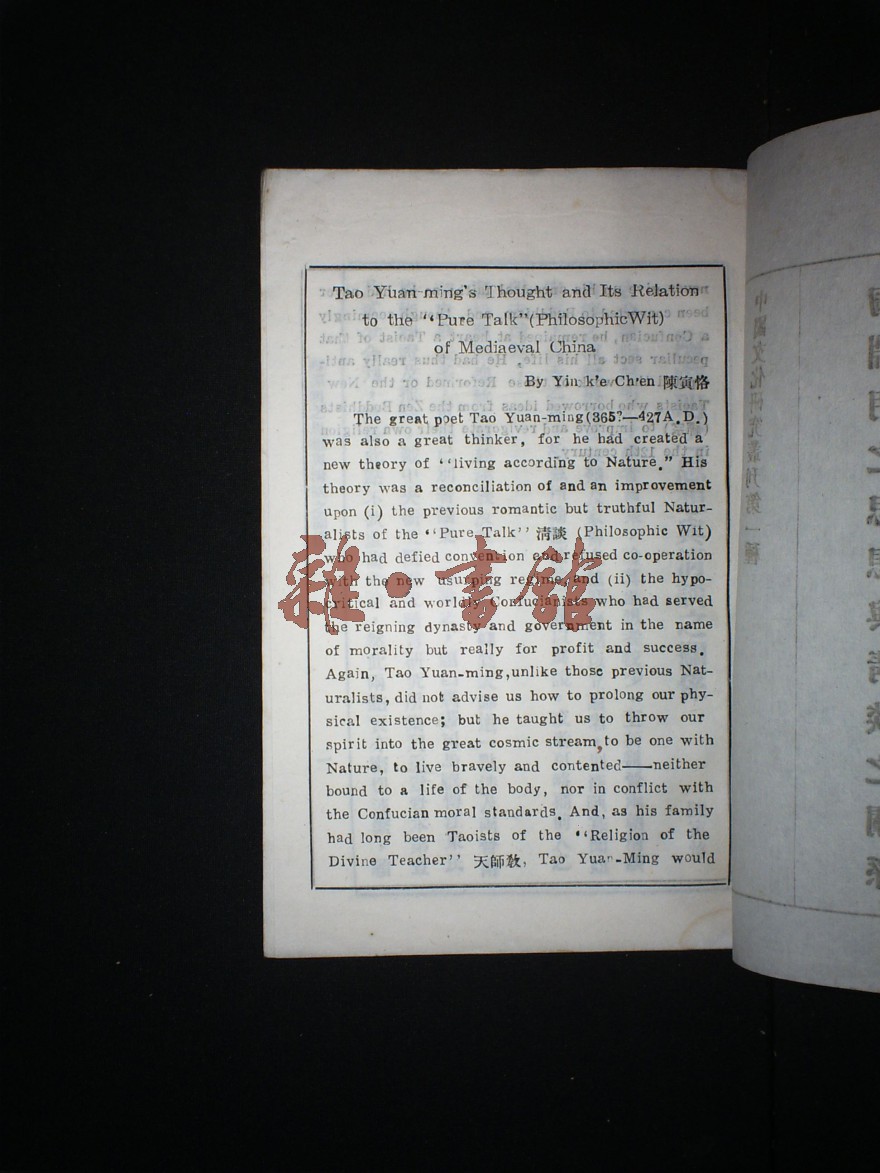 Tao Yuan-ming's Thought and Its Relation
to the "Pure Talk" (Philosophic Wit)
of Mediaeval China
By Yin k'e Ch'en 陳寅恪
The great poet Tao Yuan-ming (365?—427 A.D.)
was also a great thinker, for he had created a
new theory of "living according to Nature." His
theory was a reconciliation of and an improvement
upon (i) the previous romantic but truthful Natur-
alists of the "Pure Talk" 清談 (Philosophic Wit)
who had defied convention and refused co-operation
with the new usurping regime, and (ii) the hypo-
critical and worldly Confucianists who had served
the reigning dynasty and government in the name
of morality but really for profit and success.
Again, Tao Yuan-ming, unlike those previous Nat-
uralists, did not advise us how to prolong our phy-
sical existence; but he taught us to throw our
spirit into the great cosmic stream, to be one with
Nature, to live bravely and contented——neither
bound to a life of the body, nor in conflict with
the Confucian moral standards. And, as his family
had long been Taoists of the "Religion of the
Divine Teacher" 天師敎, Tao Yuan-Ming would
雜·書館
中國文化研究叢刊第一種
陶淵明之思想與清談之關係